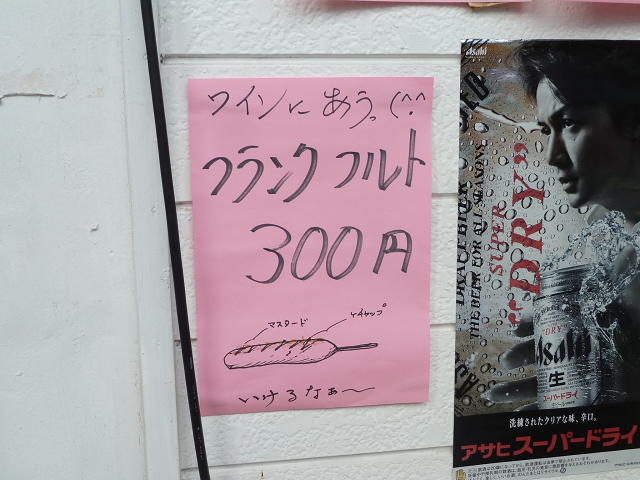 ワインにあうっ(^^
フランクフルト
300円
マスタード
ケチャップ
いけるなぁ〜
Asahi
DRAFT BEER
THE BEER FOR ALL SEASONS
SUPER
"DRY"
"DRY"
Asahi
生
スーパードライ
洗練されたクリアな味、辛口。
アサヒスーパードライ